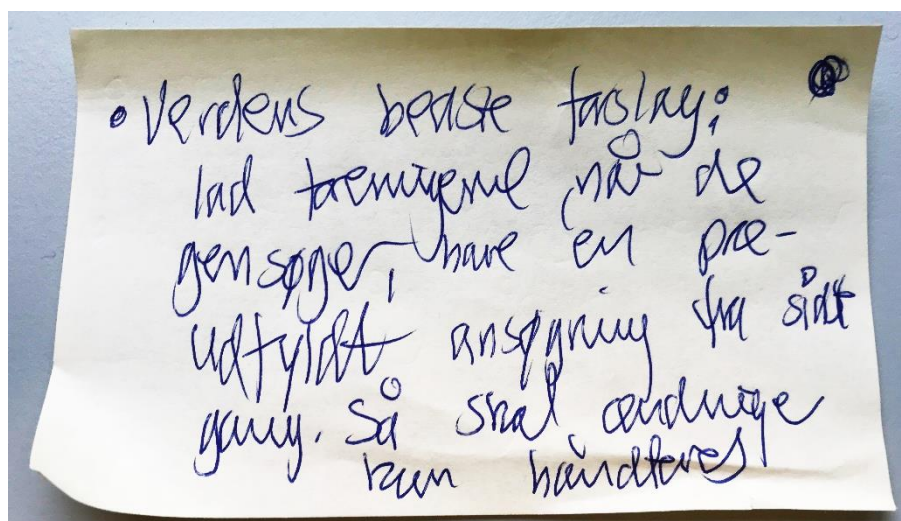 • Verdens bedste forslag:
lad foreningerne, når de
gensøger, have en præ-
udfyldt ansøgning fra sidst
gang. Så skal ændringer
kun håndteres